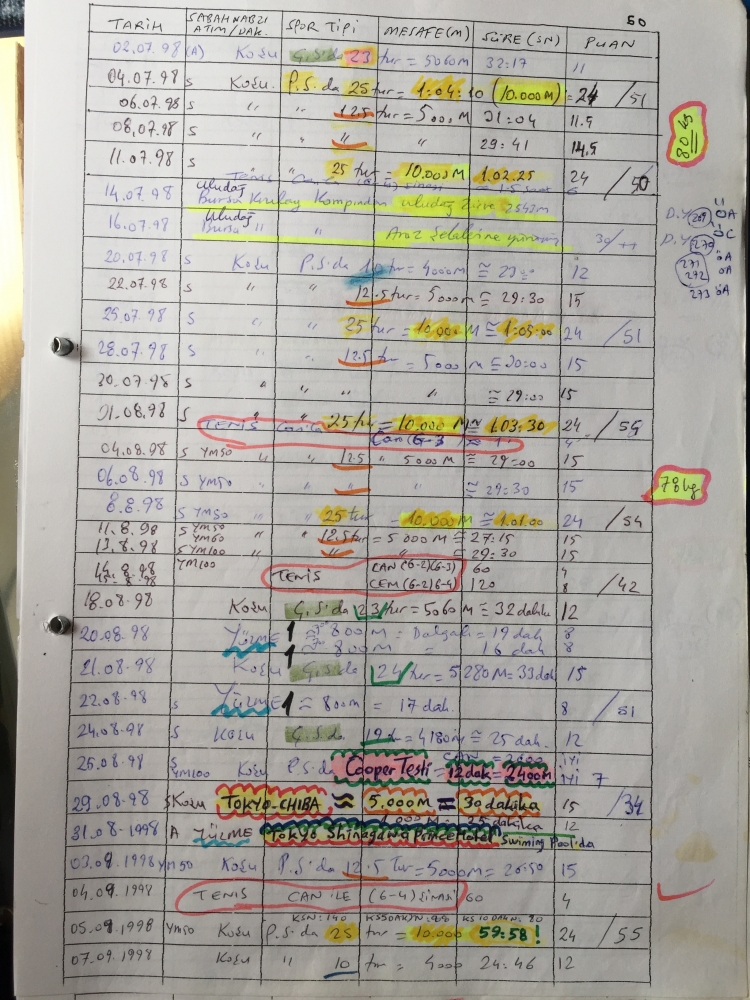 50
TARİH SABAH NABZI ATIM/DAK. SPOR TİPİ MESAFE(M) SÜRE(SN) PUAN
02.07.98 (A) Koşu G.S.da 23 tur = 5060m 32:17 11
04.07.98 S Koşu P.S.da 25 tur = 1:04:10 (10.000M) = 24 /51
06.07.98 S " " 12.5 tur = 5000M 31:04 11.5
08.07.98 S " " " " 29:41 14.5
80 kg
11.07.98 S " 25 tur = 10.000M 1.02.25 24 /50
14.07.98 Uludağ Bursa Kirazlı Kampından Uludağ Zirve 2543m
16.07.98 Uludağ Bursa " " Aras Şelalesine yürüyüş 30/++
D.Y. 269 ÖA
ÖC
D.Y. 270
271 ÖA
272 ÖA
273 ÖA
20.07.98 S Koşu P.S.da 10 tur = 4000M ≅ 23:- 12
22.07.98 S " " 12.5 tur = 5000M ≅ 29:30 15
25.07.98 S " " 25 tur = 10.000M ≅ 1:05:00 24 /51
28.07.98 S " " 12.5 tur = 5000M ≅ 30:00 15
30.07.98 S " " " " ≅ 29:00 15
01.08.98 S " " 25 tur = 10.000M ≅ 1.03:30 24 /55
TENİS Can (6-3) 4
04.08.98 S YM50 " " 12.5 " 5000M ≅ 29:00 15
06.08.98 S YM50 " " ≅ 29:30 15
78 kg
8.8.98 S YM50 " " 25 tur = 10.000M ≅ 1.01.00 24 /54
11.8.98 S YM50 " " 12.5 tur = 5000M ≅ 27:15 15
13.8.98 S YM100 " " " ≅ 29:30 15
14.8.98 YM100 TENİS CAN (6-2)(6-3) 60 4
15.8.98 CEM (6-2)(6-4) 120 8 /42
18.08.98 Koşu G.S.da 23 tur = 5060M ≅ 32 dakika 12
20.08.98 YÜZME 1 ≅ 800M = Dalgalı = 19 dak 8
1 ≅ 800M = " 16 dak 8
21.08.98 Koşu G.S.da 24 tur = 5280M = 33 dak 15
22.08.98 S YÜZME 1 ≅ 800m = 17 dak. 8 /51
24.08.98 S Koşu G.S.da 19 t. = 4180M ≅ 25 dak. 12
26.08.98 S YM100 Koşu P.S.da Cooper Testi = 12 dak = 2400m iyi 7
29.08.98 S Koşu TOKYO-CHIBA ≈ 5.000M = 30 dakika 15 /34
1.000M = 25 dakika 12
31.08.1998 A YÜZME Tokyo Shinagawa Prince Hotel Swiming Pool.da
03.09.1998 YM50 Koşu P.S.da 12.5 Tur = 5000M = 26:50 15
04.09.1998 TENİS CAN İLE (6-4) 60 4
KSN: 140
05.09.1998 YM50 Koşu P.S.da 25 tur = 10.000 59:58! 24 /55
07.09.1998 Koşu " 10 tur = 4000 24:46 12